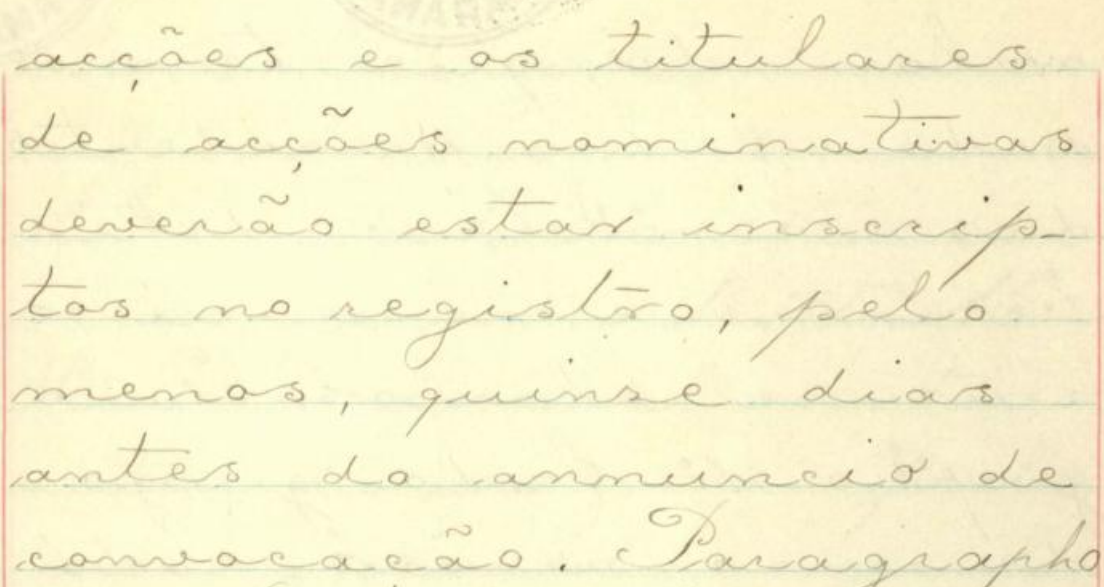 acções e os titulares
de acções nominativas
deverão estar inscrip-
tos no registro, pelo
menos, quinze dias
antes do annuncio de
convocação. Paragrapho